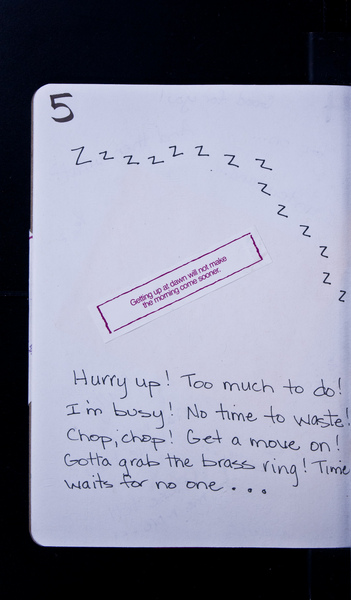 5
Z Z Z Z Z Z Z Z
Z
Z
Z
Z
Z
Z
Getting up at dawn will not make
the morning come sooner.
Hurry up! Too much to do!
I'm busy! No time to waste!
Chop, chop! Get a move on!
Gotta grab the brass ring! Time
waits for no one . . .